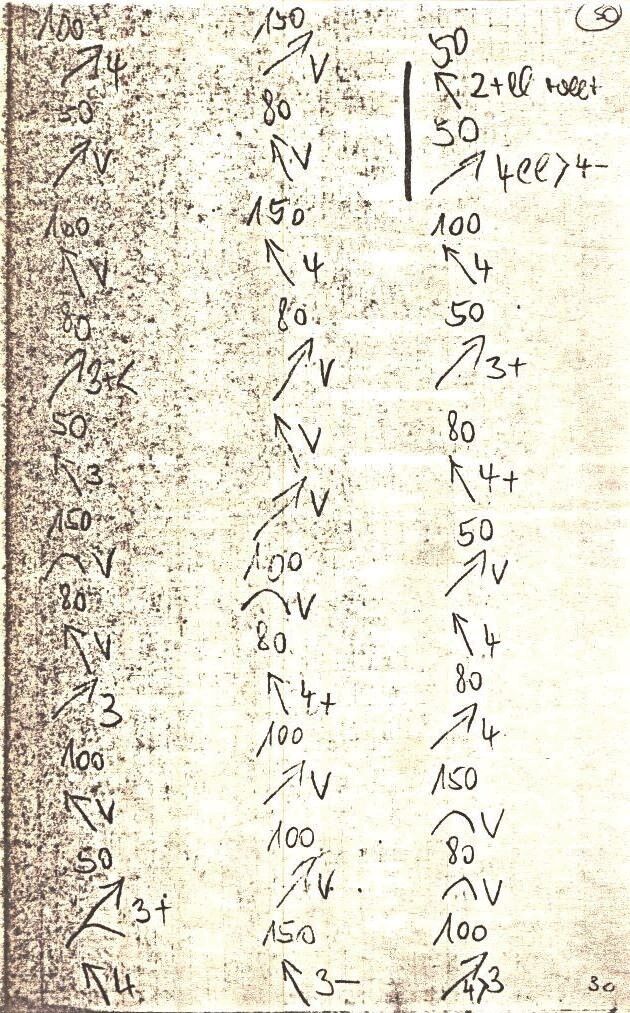 100
↗ 4
50
↗ V
100
↖ V
80
↗ 3+<
50
↖ 3
150
⌒ V
80
↖ V
↗ 3
100
↖ V
50
↗ 3+
↖ 4
150
↗ V
80
↖ V
150
↖ 4
80
↗ V
↖ V
↗ V
100
⌒ V
80
↖ 4+
100
↗ V
100
↗ V
150
↖ 3-
50
50
↖ 2+
50
↗ 4ll>4-
100
↖ 4
50
↗ 3+
80
↖ 4+
50
↗ V
↖ 4
80
↗ 4
150
⌒ V
80
⌒ V
100
↗ 4>3
30